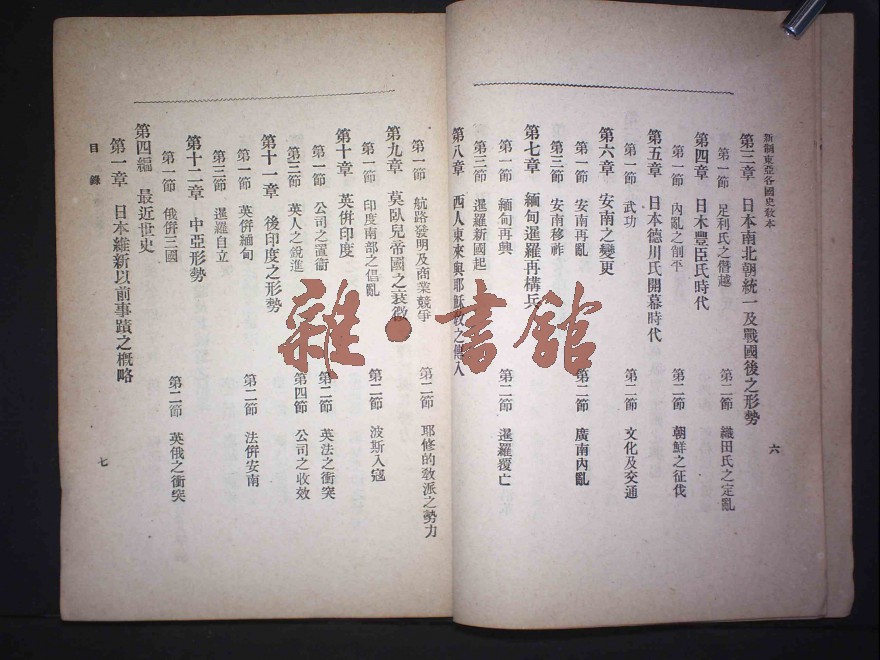 新制東亞各國史敎本
第三章 日本南北朝統一及戰國後之形勢
第一節 足利氏之僭越 第二節 織田氏之定亂
第四章 日本豐臣氏時代
第一節 內亂之削平 第二節 朝鮮之征伐
第五章 日本德川氏開幕時代
第一節 武功 第二節 文化及交通
第六章 安南之變更
第一節 安南再亂 第二節 廣南內亂
第三節 安南移祚
第七章 緬甸暹羅再構兵
第一節 緬甸再興 第二節 暹羅覆亡
第三節 暹羅新國起
六
第八章 西人東來與耶穌敎之傳入
第一節 航路發明及商業競爭 第二節 耶修的敎派之勢力
第九章 莫臥兒帝國之衰微
第一節 印度南部之倡亂 第二節 波斯入寇
第十章 英併印度
第一節 公司之置衞 第二節 英法之衝突
第三節 英人之銳進 第四節 公司之收效
第十一章 後印度之形勢
第一節 英併緬甸 第二節 法併安南
第三節 暹羅自立
第十二章 中亞形勢
第一節 俄併三國 第二節 英俄之衝突
第四編 最近世史
第一章 日本維新以前事蹟之槪略
目錄
七
雜·書館